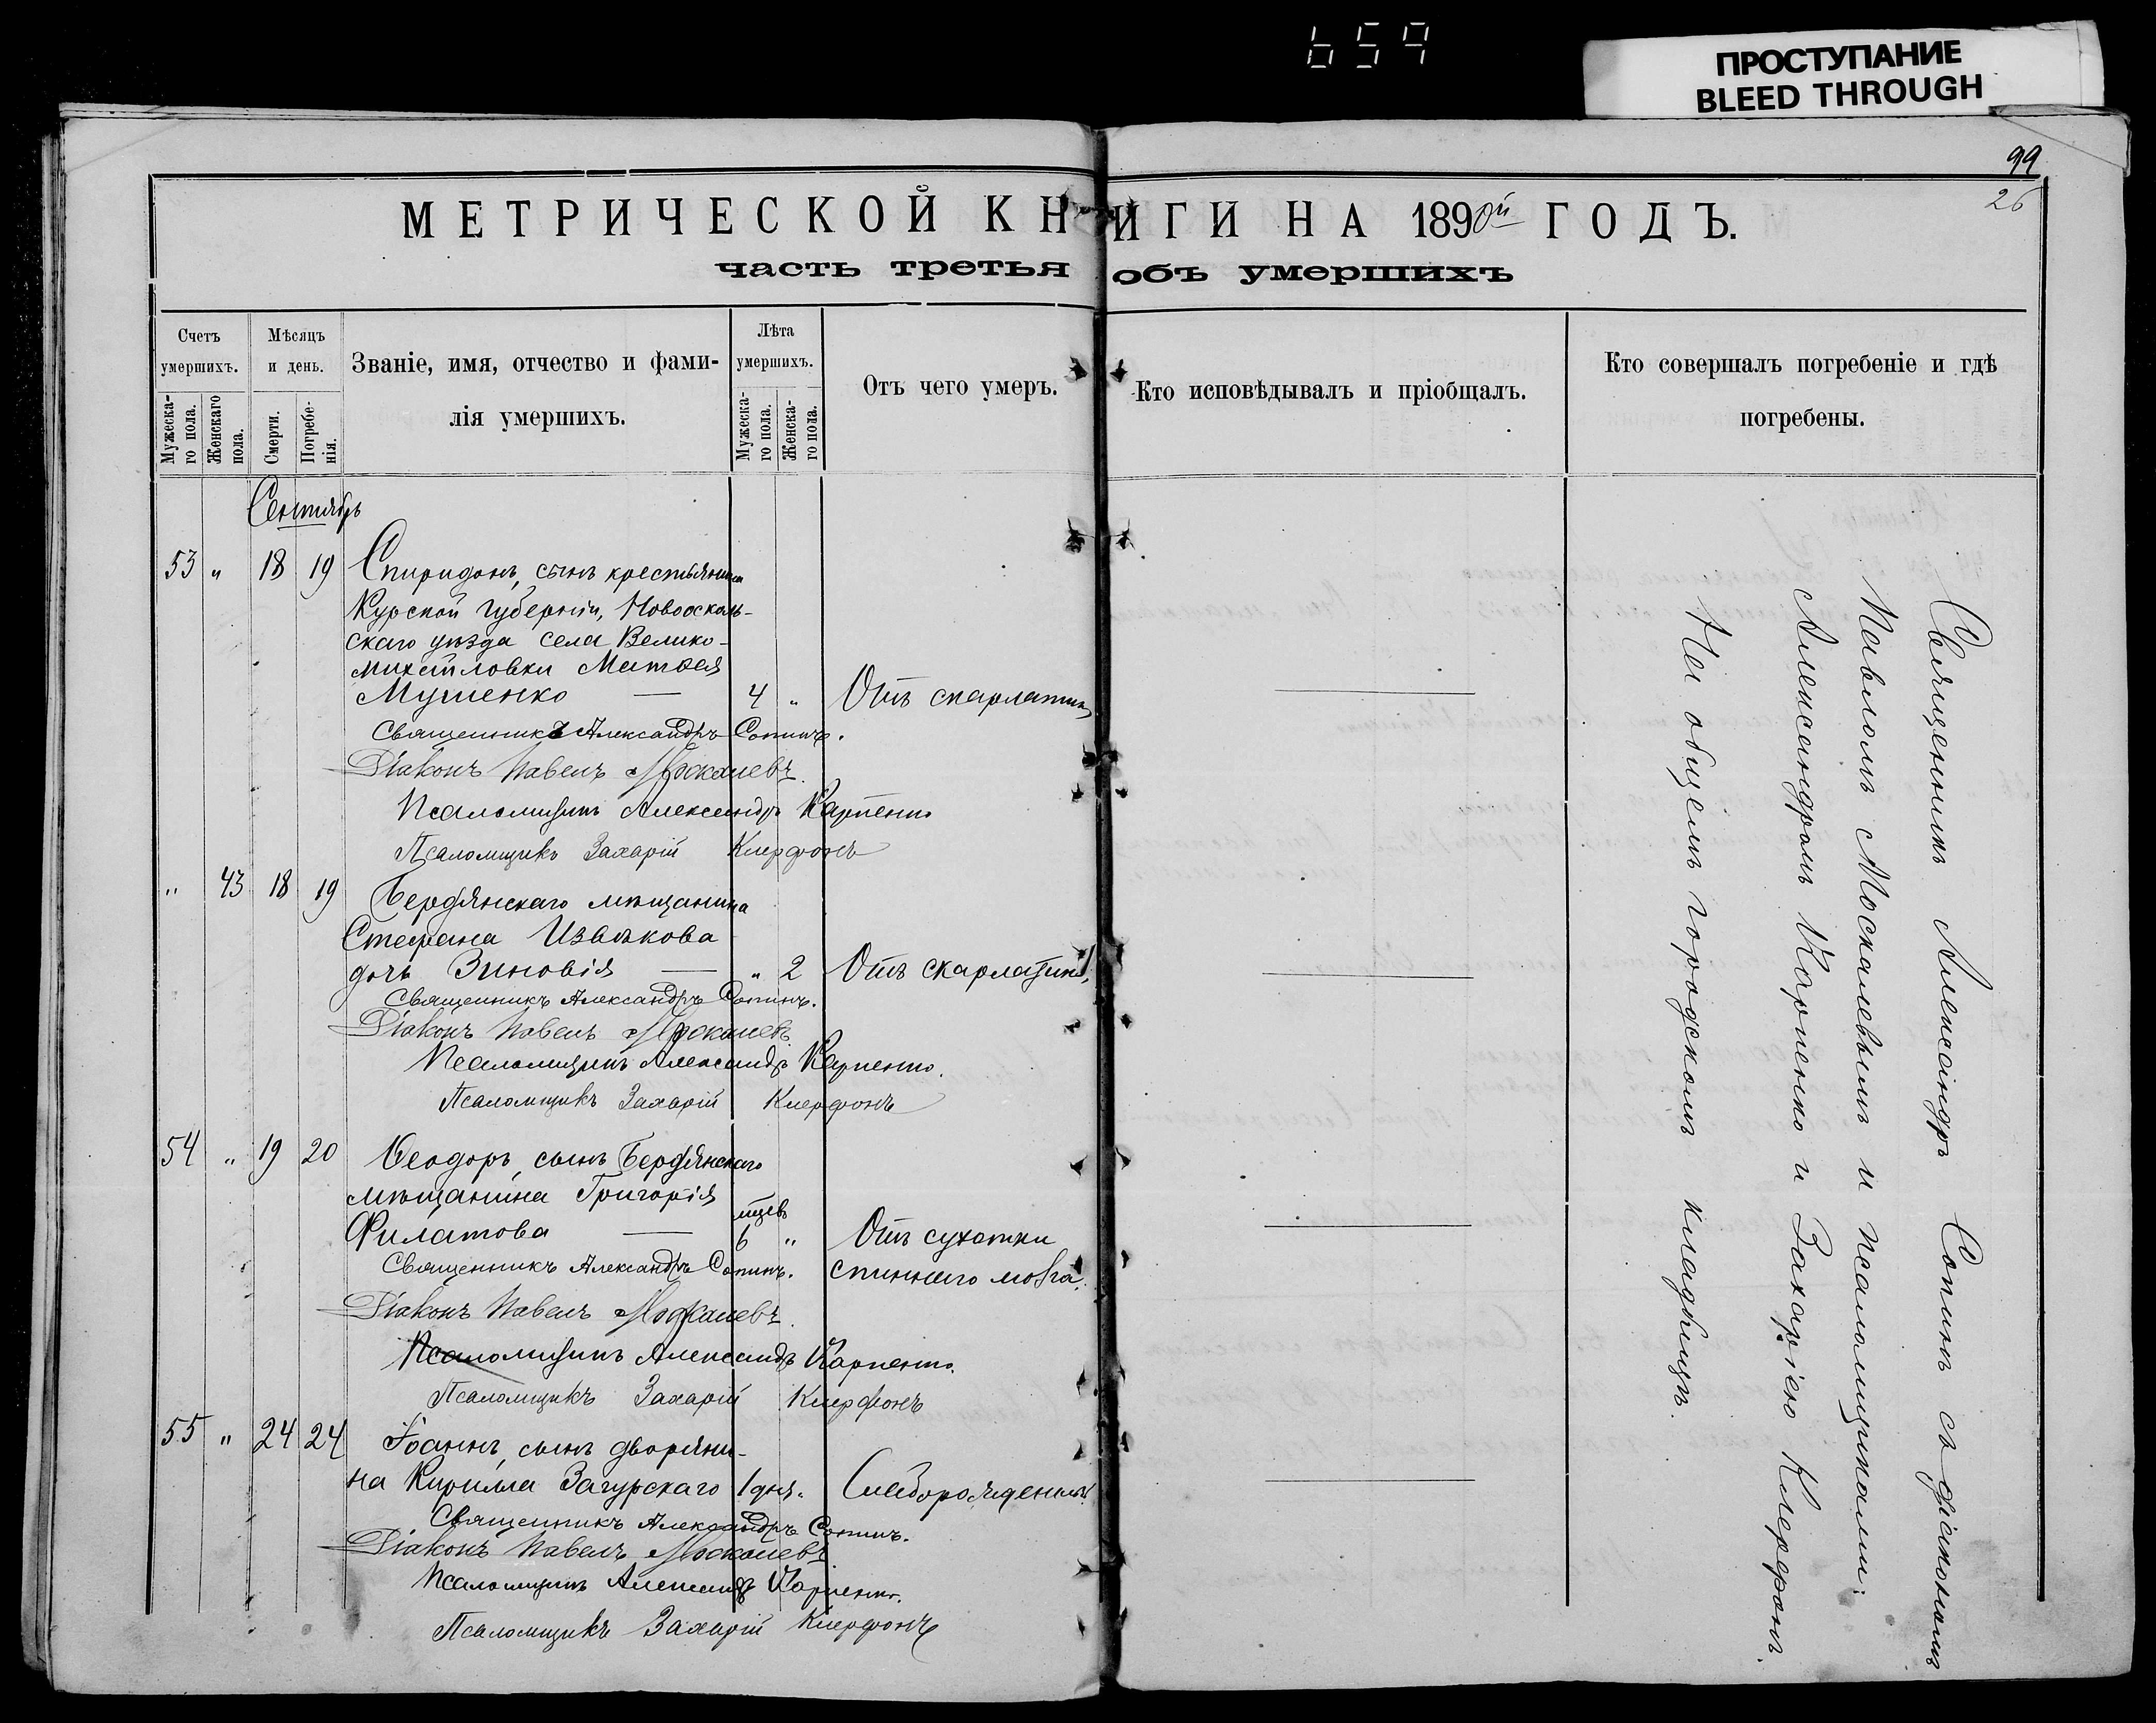 659
ПРОСТУПАНИЕ
BLEED THROUGH
99
26
МЕТРИЧЕСКОЙ КНИГИ НА 1890й ГОДЪ.
часть третья объ умершихъ
Счетъ умершихъ.
Мужеска-го пола.
Женскаго пола.
Мѣсяцъ и день.
Смерти.
Погребе-нія.
Званіе, имя, отчество и фами-
лія умершихъ.
Лѣта умершихъ.
Мужеска-го пола.
Женска-го пола.
Отъ чего умеръ.
Кто исповѣдывалъ и пріобщалъ.
Кто совершалъ погребеніе и гдѣ
погребены.
Сентябрь
53 " 18 19 Спиридонъ, сынъ крестьянина
Курской губерніи, Новоосколь-
скаго уѣзда села Велико-
михайловки Матвея
Мушенко — 4 " Отъ скарлатины
Священникъ Александръ Сопинъ.
Діаконъ Павелъ Москалевъ.
Псаломщикъ Александръ Карпенко
Псаломщикъ Захарій Клерфонъ
" 43 18 19 Бердянскаго мѣщанина
Стефана Извѣкова
дочь Зиновія — " 2 Отъ скарлатины.
Священникъ Александръ Сопинъ.
Діаконъ Павелъ Москалевъ.
Псаломщикъ Александръ Карпенко.
Псаломщикъ Захарій Клерфонъ
54 " 19 20 Ѳеодоръ, сынъ Бердянскаго
мѣщанина Григорія
мцевъ
Филатова — 6 " Отъ сухотки
Священникъ Александръ Сопинъ. спиннаго мозга.
Діаконъ Павелъ Москалевъ.
Псаломщикъ Александръ Карпенко.
Псаломщикъ Захарій Клерфонъ
55 " 24 24 Іоаннъ, сынъ дворяни-
на Кирилла Загурскаго 1 дня " Слаборожденный.
Священникъ Александръ Сопинъ.
Діаконъ Павелъ Москалевъ
Псаломщикъ Александръ Карпенко.
Псаломщикъ Захарій Клерфонъ
Священникъ Александръ Сопинъ съ діакономъ
Павломъ Москалевымъ и псаломщиками:
Александромъ Карпенко и Захаріею Клерфонъ.
На общемъ городскомъ кладбищѣ.